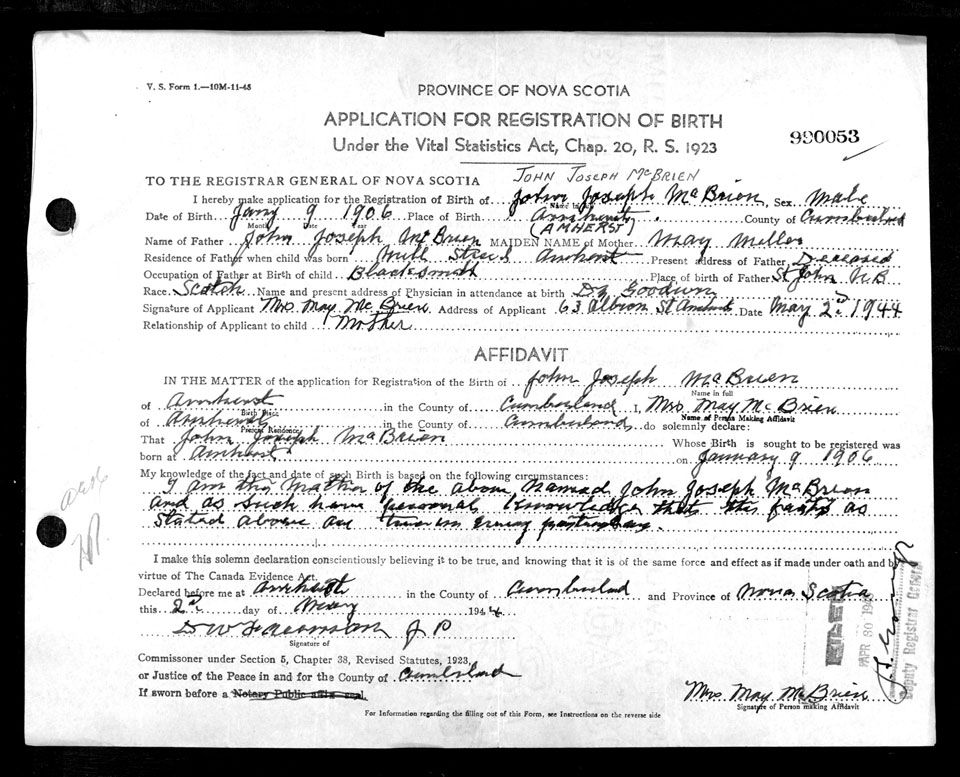 V. S. Form 1.—10M-11-45
PROVINCE OF NOVA SCOTIA
APPLICATION FOR REGISTRATION OF BIRTH
990053
Under the Vital Statistics Act, Chap. 20, R. S. 1923
JOHN JOSEPH McBRIEN
TO THE REGISTRAR GENERAL OF NOVA SCOTIA
I hereby make application for the Registration of Birth of John Joseph McBrien, Sex Male
Name in full
Date of Birth Jany 9 1906 Place of Birth Amherst County of Cumberland
Month Date Year (AMHERST)
Name of Father John Joseph McBrien MAIDEN NAME of Mother May Miller
Residence of Father when child was born Mill Street Amherst Present address of Father Deceased
Occupation of Father at Birth of child Blacksmith Place of birth of Father St John N B
Race Scotch Name and present address of Physician in attendance at birth Dr Goodwin
Signature of Applicant Mrs May McBrien Address of Applicant 63 Albion St Amherst Date May 2nd 1944
Relationship of Applicant to child Mother
AFFIDAVIT
IN THE MATTER of the application for Registration of the Birth of John Joseph McBrien
Name in full
of Amherst in the County of Cumberland I, Mrs May McBrien
Birth Place Name of Person Making Affidavit
of Amherst in the County of Cumberland do solemnly declare:
Present Residence
That John Joseph McBrien Whose Birth is sought to be registered was
born at Amherst on January 9 1906
My knowledge of the fact and date of such Birth is based on the following circumstances:
I am the Mother of the above named John Joseph McBrien
and as such have personal knowledge that the facts as
stated above are true in every particular.
I make this solemn declaration conscientiously believing it to be true, and knowing that it is of the same force and effect as if made under oath and by
virtue of The Canada Evidence Act.
Declared before me at Amherst in the County of Cumberland and Province of Nova Scotia
this 2nd day of May 1944
J P
Signature of
Commissioner under Section 5, Chapter 38, Revised Statutes, 1923,
or Justice of the Peace in and for the County of Cumberland
If sworn before a Notary Public affix seal.
Mrs. May McBrien
Signature of Person making Affidavit
For Information regarding the filling out of this Form, see Instructions on the reverse side
FILED
APR 30 194
Deputy Registrar General